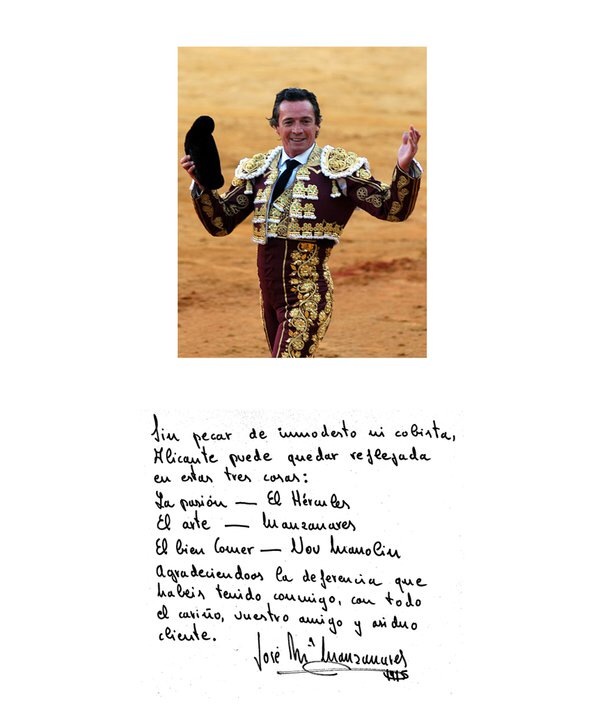 Sin pecar de inmodesto ni cobista,
Alicante puede quedar reflejada
en estas tres cosas:
La pasión — El Hércules
El arte — Manzanares
El bien Comer — Nou Manolin
Agradeciendoos la deferencia que
habeis tenido conmigo, con todo
el cariño, vuestro amigo y asiduo
cliente.
José Mª Manzanares